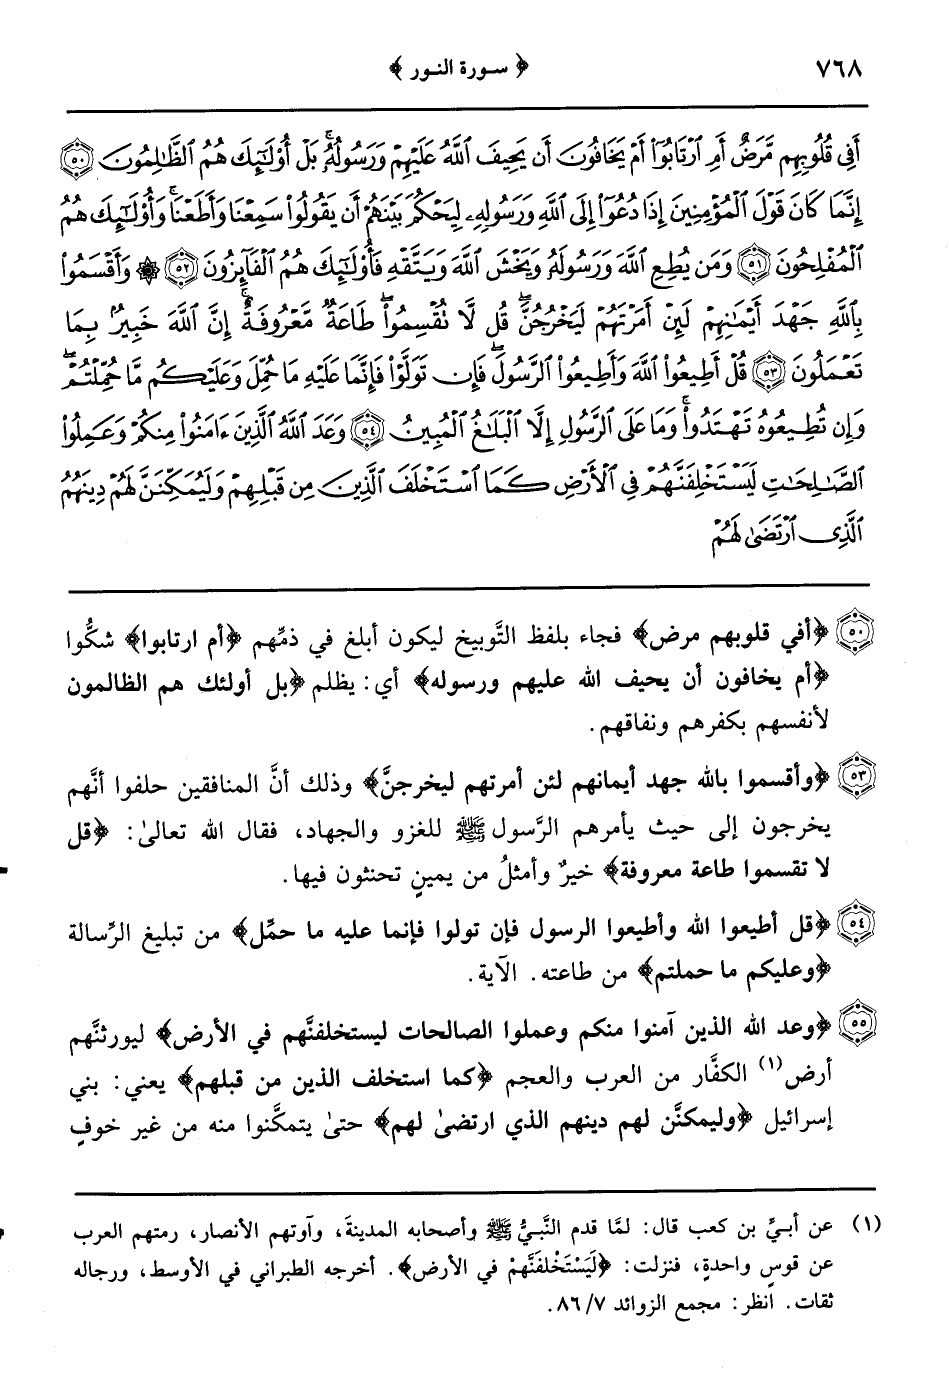 ٧٦٨ ﴿ سورة النور ﴾
أَفِي قُلُوبِهِم مَّرَضٌ أَمِ ٱرْتَابُوٓا۟ أَمْ يَخَافُونَ أَن يَحِيفَ ٱللَّهُ عَلَيْهِمْ وَرَسُولُهُۥ ۚ بَلْ أُو۟لَٰٓئِكَ هُمُ ٱلظَّٰلِمُونَ ٥٠
إِنَّمَا كَانَ قَوْلَ ٱلْمُؤْمِنِينَ إِذَا دُعُوٓا۟ إِلَى ٱللَّهِ وَرَسُولِهِۦ لِيَحْكُمَ بَيْنَهُمْ أَن يَقُولُوا۟ سَمِعْنَا وَأَطَعْنَا ۚ وَأُو۟لَٰٓئِكَ هُمُ
ٱلْمُفْلِحُونَ ٥١ وَمَن يُطِعِ ٱللَّهَ وَرَسُولَهُۥ وَيَخْشَ ٱللَّهَ وَيَتَّقْهِ فَأُو۟لَٰٓئِكَ هُمُ ٱلْفَآئِزُونَ ٥٢ ۞ وَأَقْسَمُوا۟
بِٱللَّهِ جَهْدَ أَيْمَٰنِهِمْ لَئِنْ أَمَرْتَهُمْ لَيَخْرُجُنَّ ۖ قُل لَّا تُقْسِمُوا۟ ۖ طَاعَةٌ مَّعْرُوفَةٌ ۚ إِنَّ ٱللَّهَ خَبِيرٌۢ بِمَا
تَعْمَلُونَ ٥٣ قُلْ أَطِيعُوا۟ ٱللَّهَ وَأَطِيعُوا۟ ٱلرَّسُولَ ۖ فَإِن تَوَلَّوْا۟ فَإِنَّمَا عَلَيْهِ مَا حُمِّلَ وَعَلَيْكُم مَّا حُمِّلْتُمْ ۖ
وَإِن تُطِيعُوهُ تَهْتَدُوا۟ ۚ وَمَا عَلَى ٱلرَّسُولِ إِلَّا ٱلْبَلَٰغُ ٱلْمُبِينُ ٥٤ وَعَدَ ٱللَّهُ ٱلَّذِينَ ءَامَنُوا۟ مِنكُمْ وَعَمِلُوا۟
ٱلصَّٰلِحَٰتِ لَيَسْتَخْلِفَنَّهُمْ فِي ٱلْأَرْضِ كَمَا ٱسْتَخْلَفَ ٱلَّذِينَ مِن قَبْلِهِمْ وَلَيُمَكِّنَنَّ لَهُمْ دِينَهُمُ
ٱلَّذِى ٱرْتَضَىٰ لَهُمْ
٥٠ ﴿أفي قلوبهم مرض﴾ فجاء بلفظ التَّوبيخ ليكون أبلغ في ذمِّهم ﴿أم ارتابوا﴾ شكُّوا
﴿أم يخافون أن يحيف الله عليهم ورسوله﴾ أي: يظلم ﴿بل أولئك هم الظالمون
لأنفسهم بكفرهم ونفاقهم.
٥٣ ﴿وأقسموا بالله جهد أيمانهم لئن أمرتهم ليخرجنَّ﴾ وذلك أنَّ المنافقين حلفوا أنَّهم
يخرجون إلى حيث يأمرهم الرَّسول ﷺ للغزو والجهاد، فقال الله تعالىٰ: ﴿قل
لا تقسموا طاعة معروفة﴾ خيرٌ وأمثلُ من يمينٍ تحنثون فيها.
٥٤ ﴿قل أطيعوا الله وأطيعوا الرسول فإن تولوا فإنما عليه ما حمِّل﴾ من تبليغ الرِّسالة
﴿وعليكم ما حملتم﴾ من طاعته. الآية.
٥٥ ﴿وعد الله الذين آمنوا منكم وعملوا الصالحات ليستخلفنَّهم في الأرض﴾ ليورثنَّهم
أرض(١) الكفَّار من العرب والعجم ﴿كما استخلف الذين من قبلهم﴾ يعني: بني
إسرائيل ﴿وليمكنَّن لهم دينهم الذي ارتضىٰ لهم﴾ حتىٰ يتمكَّنوا منه من غير خوفٍ
(١) عن أبيِّ بن كعب قال: لمَّا قدم النَّبيُّ ﷺ وأصحابه المدينةَ، وآوتهم الأنصار، رمتهم العرب
عن قوسٍ واحدةٍ، فنزلت: ﴿لَيَسْتَخْلِفَنَّهُمْ في الأرض﴾. أخرجه الطبراني في الأوسط، ورجاله
ثقات. انظر: مجمع الزوائد ٨٦/٧.